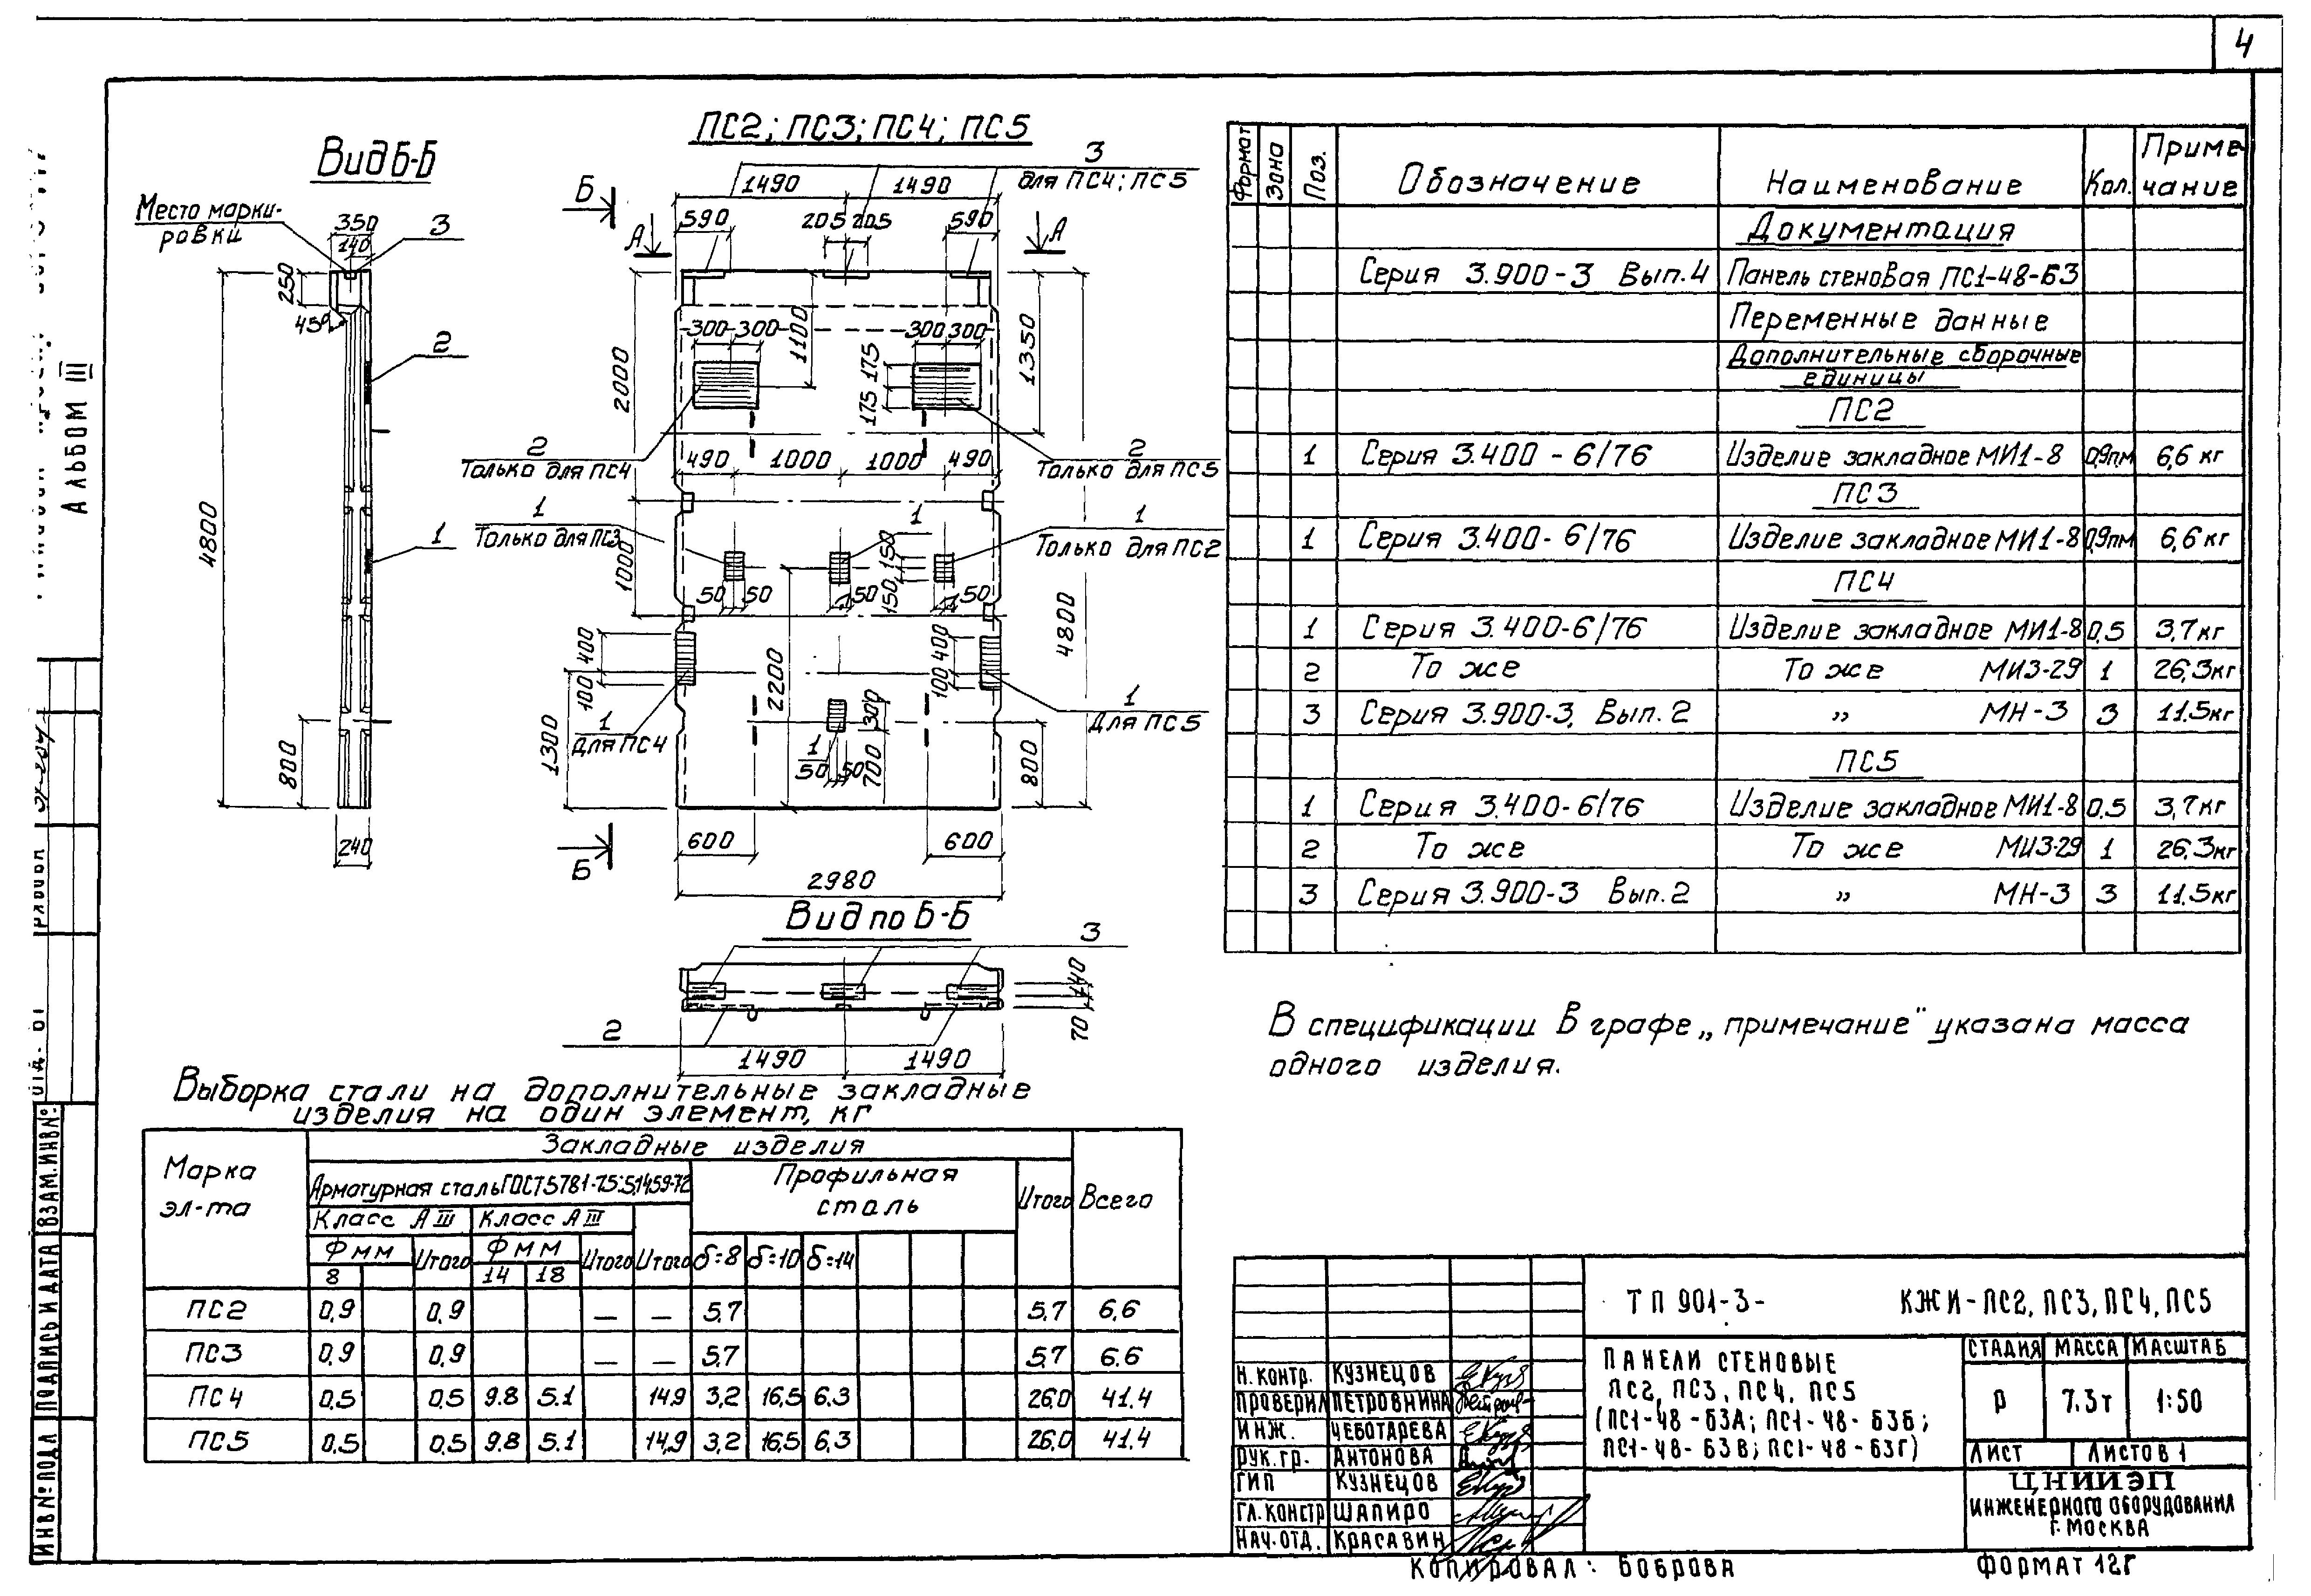 4
ПС2; ПС3; ПС4; ПС5
Вид Б-Б
Место марки-
ровки
350
140
3
250
45°
2
1
4800
800
240
Б
А
А
3
для ПС4; ПС5
1490
1490
590
205
205
590
300
300
300
300
1100
1350
175
175
2000
2
Только для ПС4
2
Только для ПС5
490
1000
1000
490
1
Только для ПС3
1
1
Только для ПС2
1000
150
150
50
50
50
50
400
100
400
100
2200
4800
1
Для ПС4
1
Для ПС5
1300
300
700
1
50
50
800
Б
600
600
2980
Вид по Б-Б
3
2
140
70
1490
1490
Формат
Зона
Поз.
Обозначение
Наименование
Кол.
Приме-
чание
Документация
Серия 3.900-3 Вып.4 Панель стеновая ПС1-48-Б3
Переменные данные
Дополнительные сборочные
единицы
ПС2
1 Серия 3.400-6/76 Изделие закладное МИ1-8 0,9п.м 6,6 кг
ПС3
1 Серия 3.400-6/76 Изделие закладное МИ1-8 0,9пм 6,6 кг
ПС4
1 Серия 3.400-6/76 Изделие закладное МИ1-8 0,5 3,7кг
2 То же То же МИ3-29 1 26,3кг
3 Серия 3.900-3, Вып. 2 „ МН-3 3 11.5кг
ПС5
1 Серия 3.400-6/76 Изделие закладное МИ1-8 0,5 3,7 кг
2 То же То же МИ3-29 1 26,3кг
3 Серия 3.900-3 Вып. 2 „ МН-3 3 11.5кг
В спецификации в графе „примечание" указана масса
одного изделия.
Выборка стали на дополнительные закладные
изделия на один элемент, кг
Марка
эл-та
Закладные изделия
Арматурная сталь ГОСТ 5781-75; 5.1459-72
Профильная
сталь
Итого
Всего
Класс А III
Класс А III
Ф мм
Итого
Ф мм
Итого
Итого
δ=8
δ=10
δ=14
8
14
18
ПС2 0,9 0,9 — — 5,7 5,7 6,6
ПС3 0,9 0,9 — — 5,7 5,7 6.6
ПС4 0,5 0,5 9.8 5.1 14,9 3,2 16,5 6.3 26,0 41.4
ПС5 0,5 0,5 9.8 5.1 14,9 3,2 16,5 6,3 26,0 41.4
ТП 901-3- КЖИ-ПС2, ПС3, ПС4, ПС5
ПАНЕЛИ СТЕНОВЫЕ
ПС2, ПС3, ПС4, ПС5
(ПС1-48-Б3А; ПС1-48-Б3Б;
ПС1-48-Б3В; ПС1-48-Б3Г)
СТАДИЯ
МАССА
МАСШТАБ
Р
7.3т
1:50
ЛИСТ
ЛИСТОВ 1
ЦНИИЭП
ИНЖЕНЕРНОГО ОБОРУДОВАНИЯ
Г. МОСКВА
Н. КОНТР. КУЗНЕЦОВ
ПРОВЕРИЛ ПЕТРОВНИНА
ИНЖ. ЧЕБОТАРЕВА
РУК. ГР. АНТОНОВА
ГИП КУЗНЕЦОВ
ГЛ. КОНСТР ШАПИРО
НАЧ. ОТД. КРАСАВИН
КОПИРОВАЛ: БОБРОВА
ФОРМАТ 12Г
АЛЬБОМ III
ВЗАМ. ИНВ.№
ПОДПИСЬ И ДАТА
ИНВ № ПОДЛ